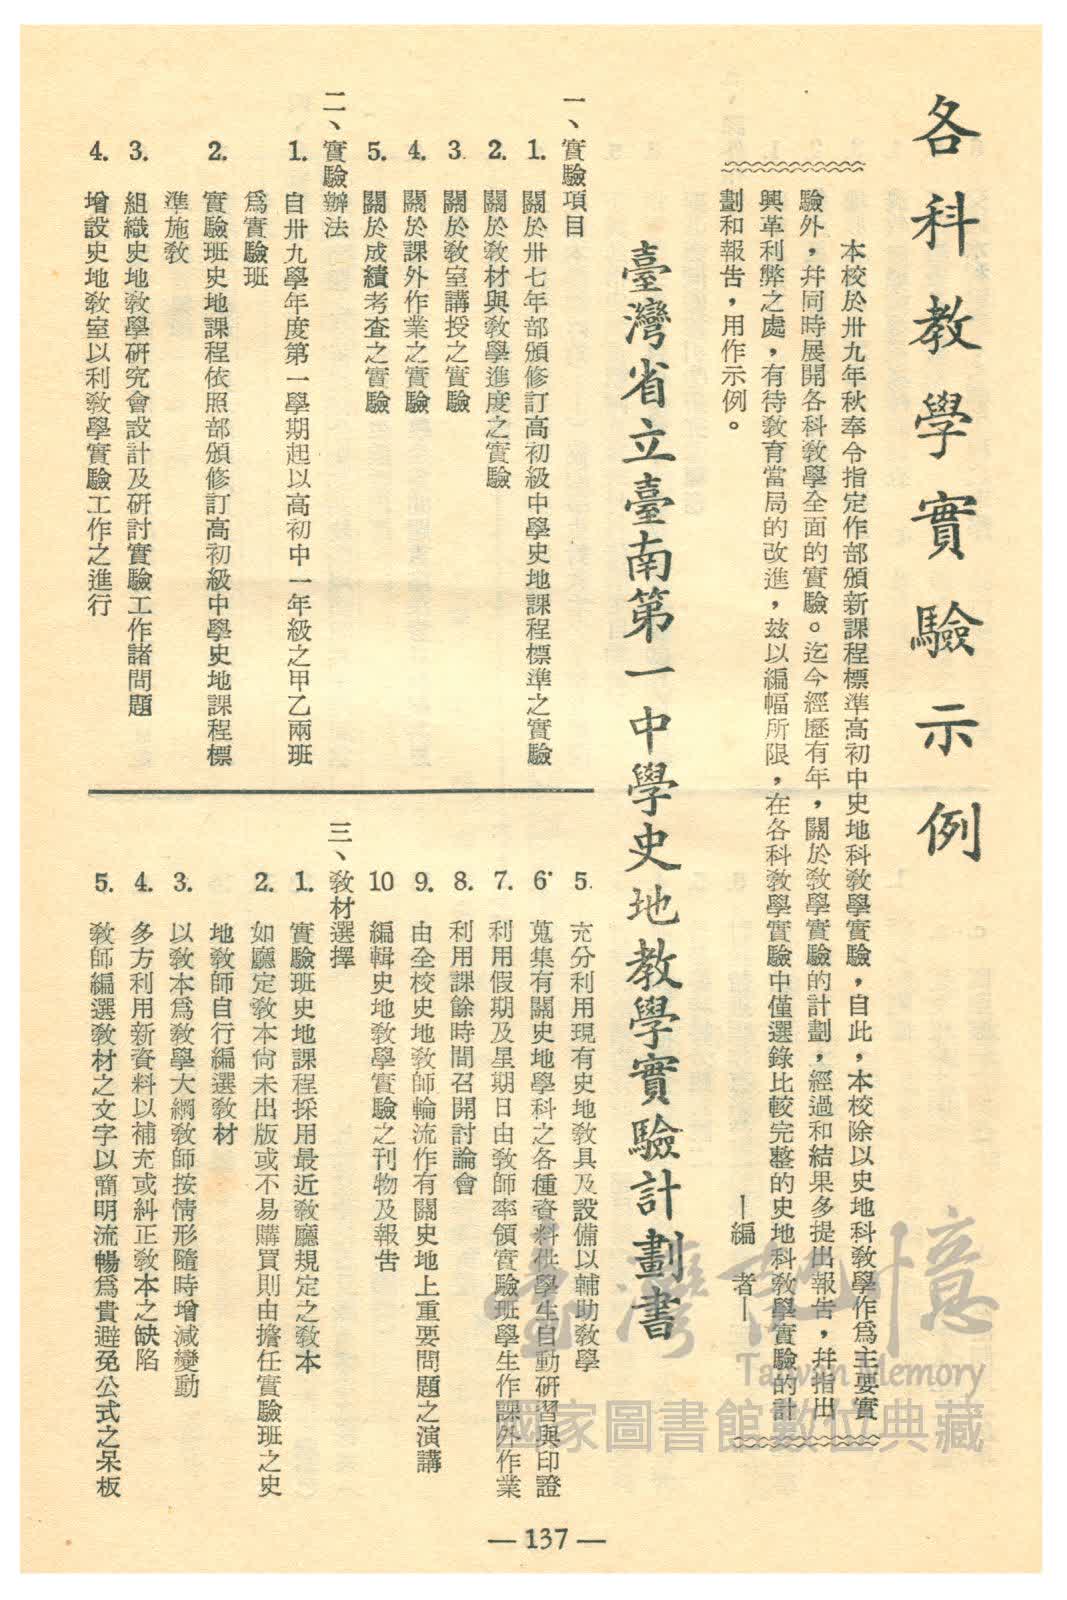 各科教學實驗示例
本校於卅九年秋奉令指定作部頒新課程標準高初中史地科教學實驗，自此，本校除以史地科教學作爲主要實
驗外，幷同時展開各科教學全面的實驗。迄今經歷有年，關於教學實驗的計劃，經過和結果多提出報告，幷指出
興革利弊之處，有待教育當局的改進，玆以編幅所限，在各科教學實驗中僅選錄比較完整的史地科教學實驗的計
劃和報告，用作示例。
—編 者—
臺灣省立臺南第一中學史地教學實驗計劃書
一、實驗項目
1. 關於卅七年部頒修訂高初級中學史地課程標準之實驗
2. 關於教材與教學進度之實驗
3. 關於教室講授之實驗
4. 關於課外作業之實驗
5. 關於成績考查之實驗
二、實驗辦法
1. 自卅九學年度第一學期起以高初中一年級之甲乙兩班
爲實驗班
2. 實驗班史地課程依照部頒修訂高初級中學史地課程標
準施教
3. 組織史地教學研究會設計及研討實驗工作諸問題
4. 增設史地教室以利教學實驗工作之進行
5. 充分利用現有史地教具及設備以輔助教學
6. 蒐集有關史地學科之各種資料供學生自動研習與印證
7. 利用假期及星期日由教師率領實驗班學生作課外作業
8. 利用課餘時間召開討論會
9. 由全校史地教師輪流作有關史地上重要問題之演講
10 編輯史地教學實驗之刊物及報告
三、教材選擇
1. 實驗班史地課程採用最近教廳規定之教本
2. 如廳定教本尙未出版或不易購買則由擔任實驗班之史
地教師自行編選教材
3. 以教本爲教學大綱教師按情形隨時增減變動
4. 多方利用新資料以補充或糾正教本之缺陷
5. 教師編選教材之文字以簡明流暢爲貴避免公式之呆板
—137—
臺灣記憶
Taiwan Memory
國家圖書館數位典藏